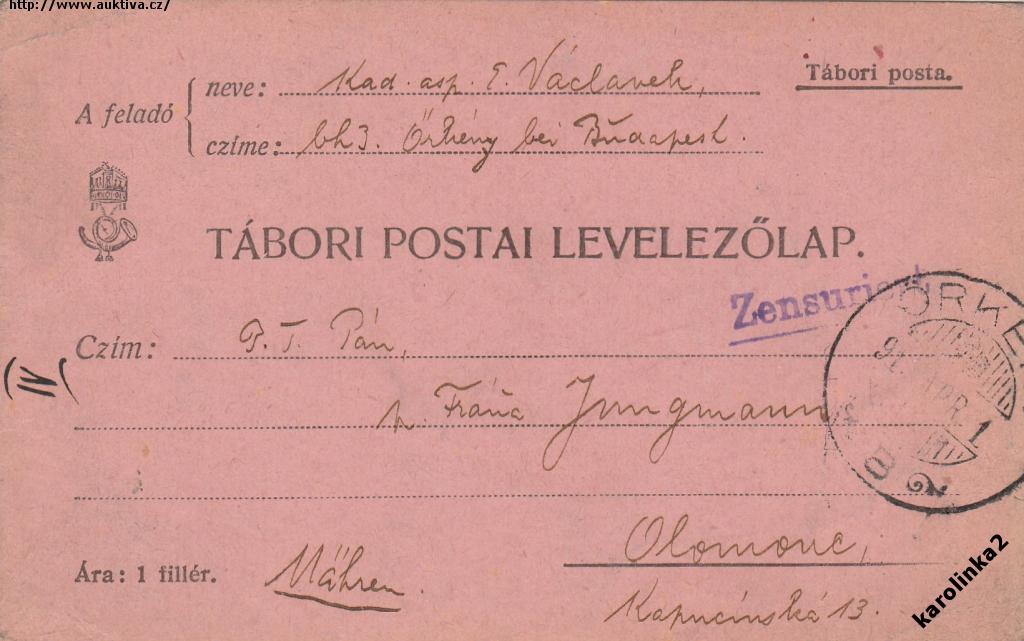 http://www.auktiva.cz/
Tábori posta.
A feladó
neve: Kad. asp. E. Václavek,
czíme: bh3. Örkény bei Budapest.
TÁBORI POSTAI LEVELEZŐLAP.
Zensuriert
ÖRKÉ
91 APR. 1
Czím: P. T. Pán,
p. Fráňa Jungmann
Olomouc,
Ára: 1 fillér.
Mähren.
Kapucínská 13.
IV
karolinka2